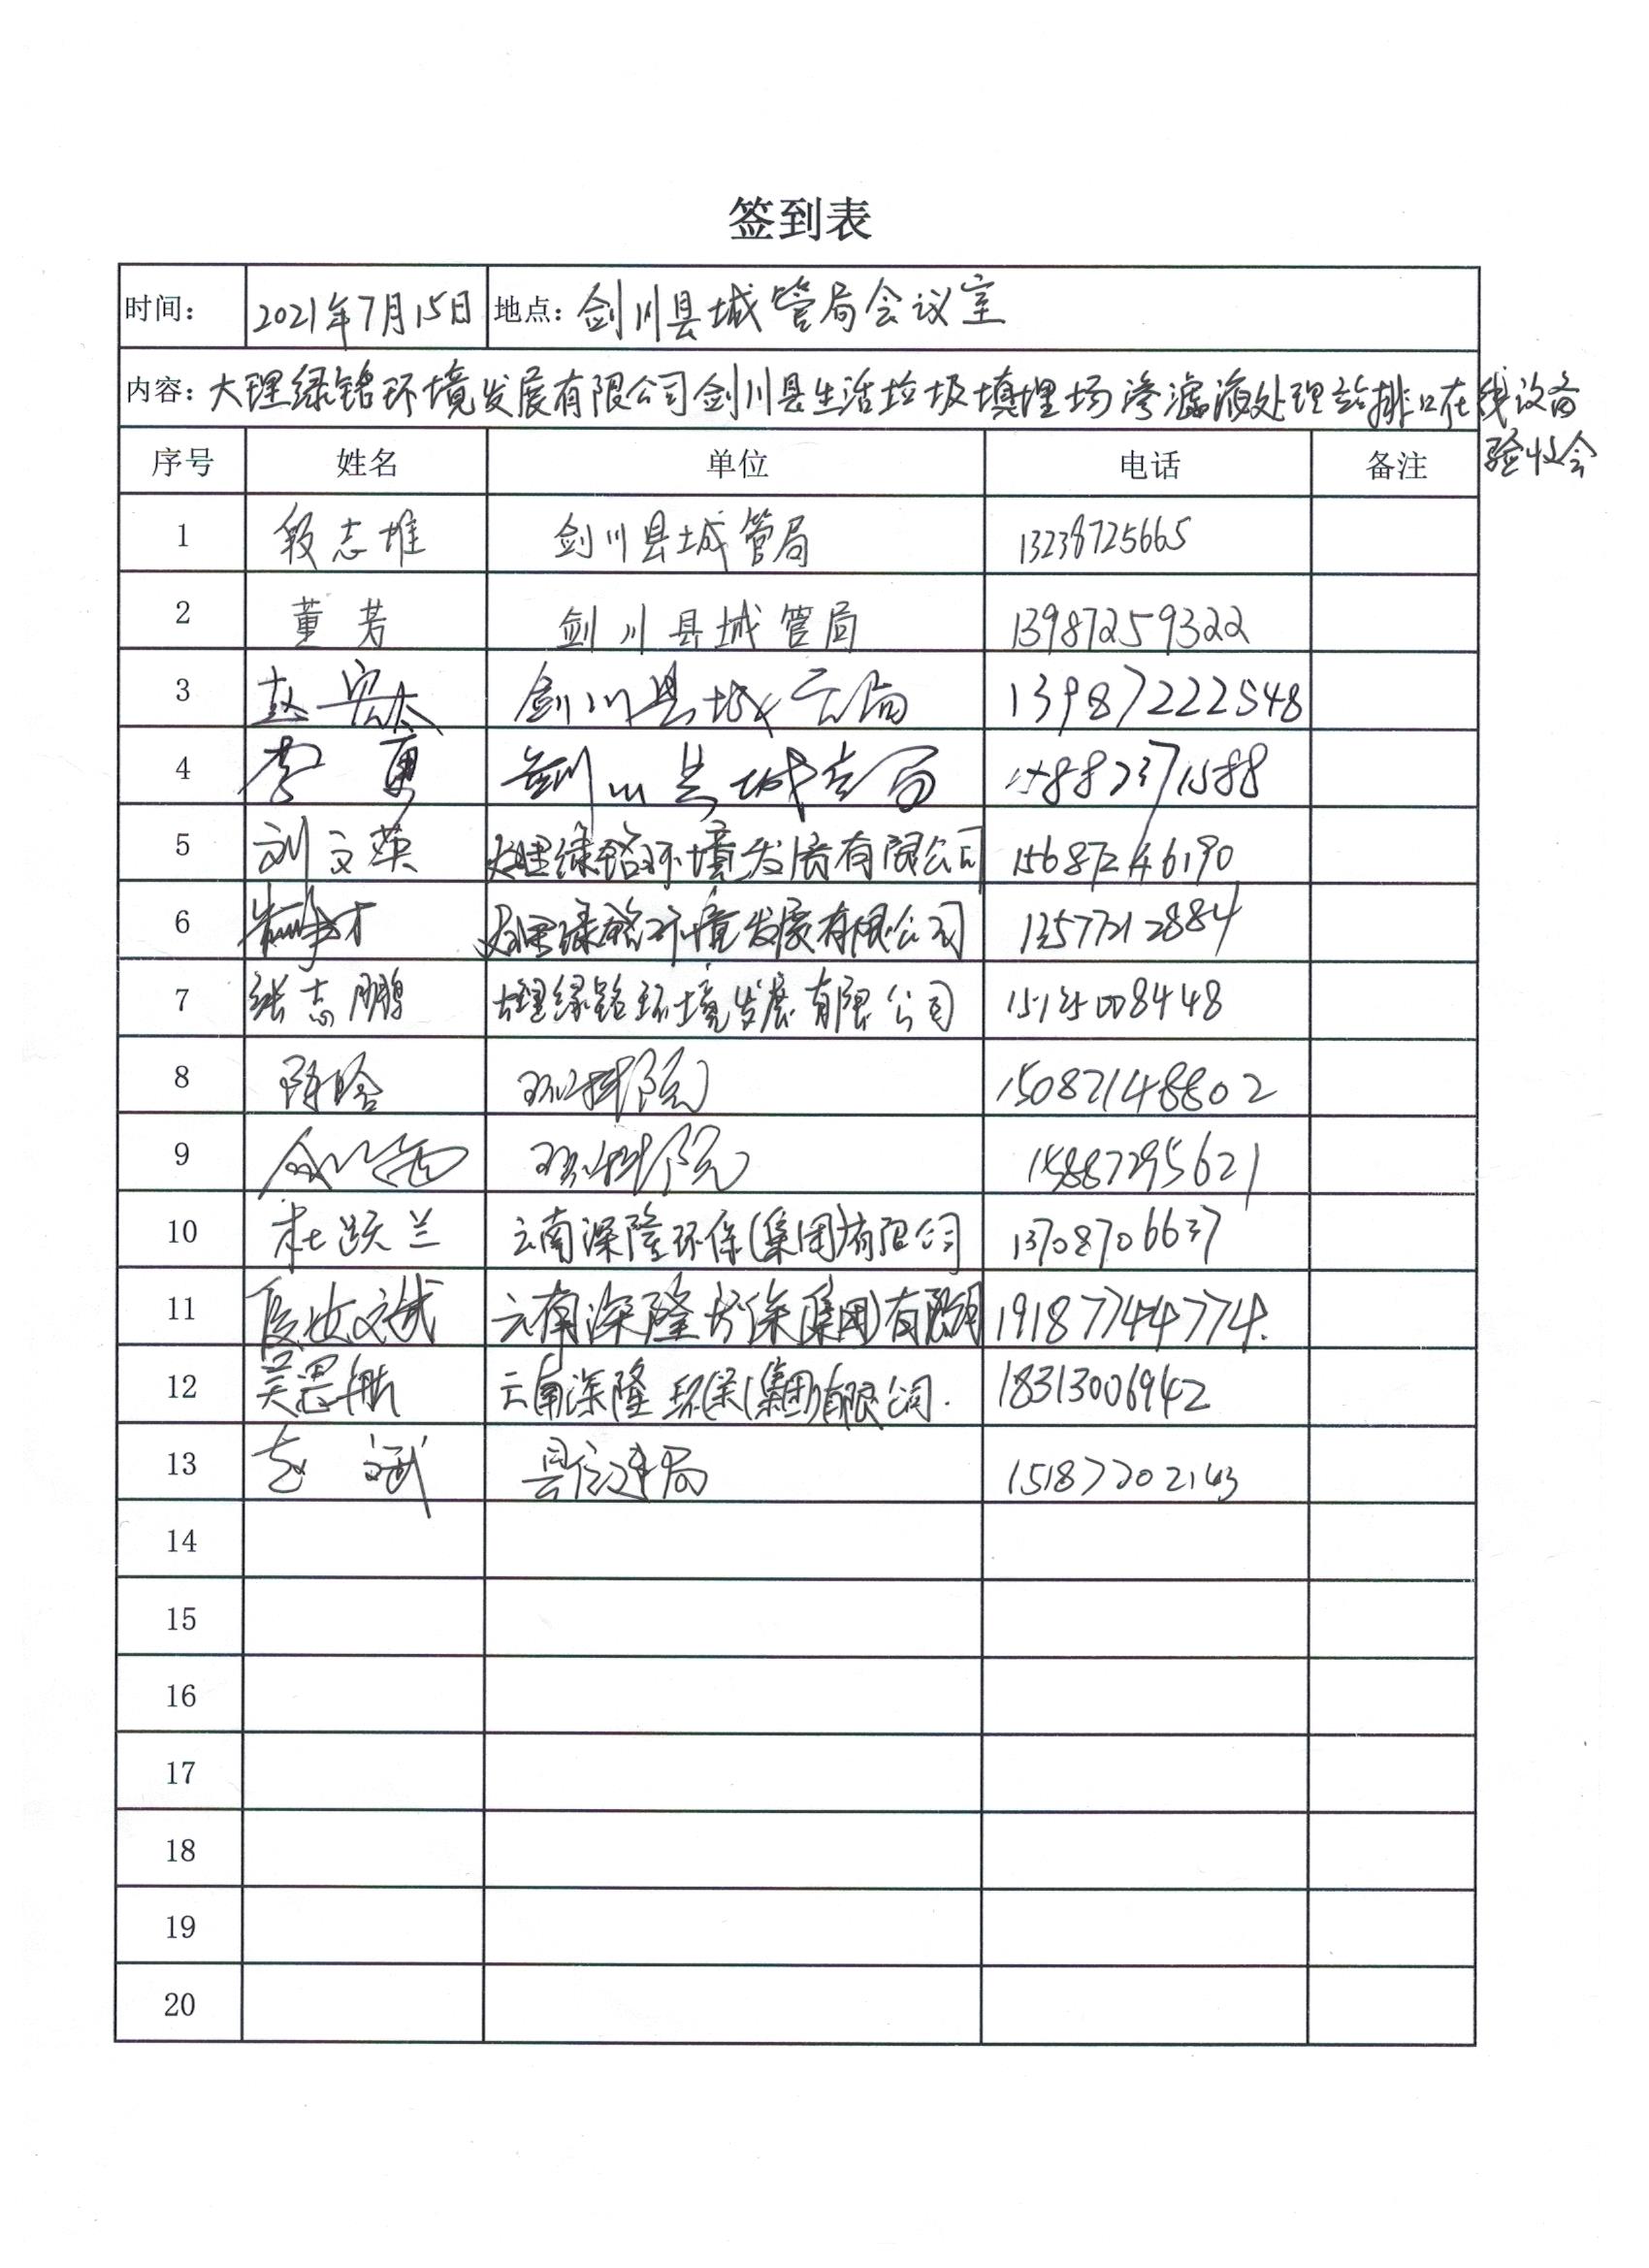 签到表
时间： 2021年7月15日 地点： 剑川县城管局会议室
内容：大理绿铭环境发展有限公司剑川县生活垃圾填埋场渗滤液处理站排口在线设备
验收会
序号 姓名 单位 电话 备注
1 段志雄 剑川县城管局 13238725665
2 董芳 剑川县城管局 13987259322
3 赵 剑川县城管局 13987222548
4 李勇 剑川县城管局 15882371588
5 刘文英 大理绿铭环境发展有限公司 15687246190
6 大理绿铭环境发展有限公司 13577212884
7 张志鹏 大理绿铭环境发展有限公司
8 陈晗 环科院 15087148802
9 环科院 15887295621
10 杜跃兰 云南深隆环保(集团)有限公司 13708706637
11 段必斌 云南深隆环保(集团)有限公司 19187744774.
12 吴思航 云南深隆环保(集团)有限公司. 18313006942
13 赵斌 县住建局 15187202143
14
15
16
17
18
19
20